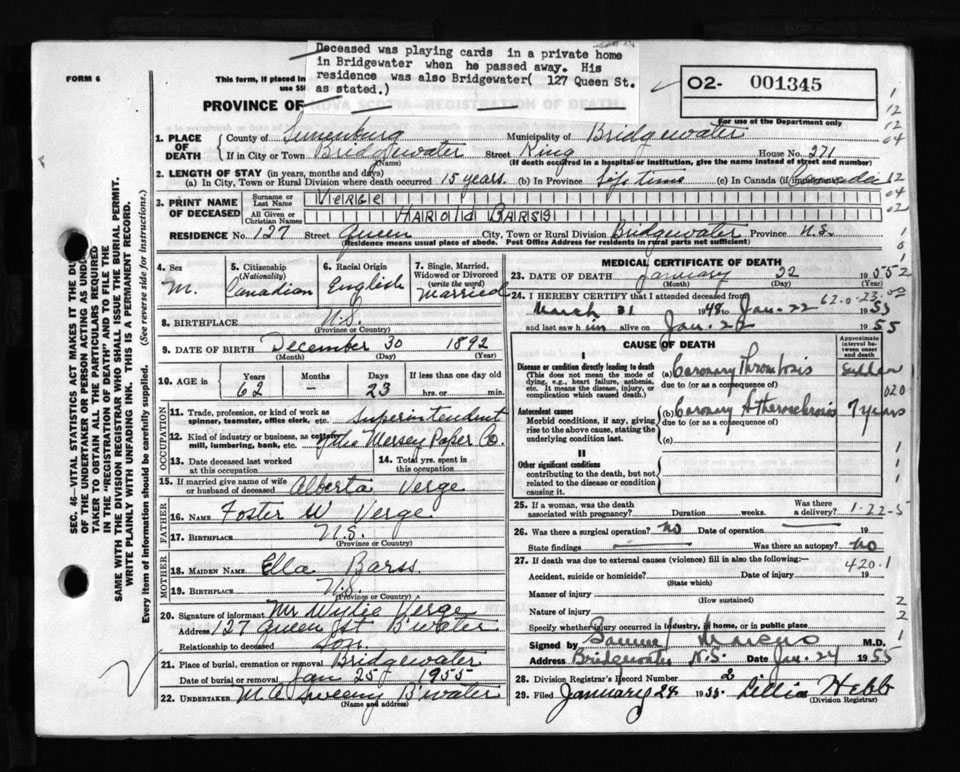 Deceased was playing cards in a private home
in Bridgewater when he passed away. His
residence was also Bridgewater( 127 Queen St.
as stated.)
FORM 6
This form, if placed in
PROVINCE OF NOVA SCOTIA—REGISTRATION OF DEATH
O2- 001345
For use of the Department only
SEC. 46—VITAL STATISTICS ACT MAKES IT THE DU
OF THE UNDERTAKER OR PERSON ACTING AS UND
TAKER TO OBTAIN ALL THE PARTICULARS REQUIRED
IN THE "REGISTRATION OF DEATH" AND TO FILE THE
SAME WITH THE DIVISION REGISTRAR WHO SHALL ISSUE THE BURIAL PERMIT.
WRITE PLAINLY WITH UNFADING INK. THIS IS A PERMANENT RECORD.
Every item of information should be carefully supplied. (See reverse side for instructions.)
1. PLACE OF DEATH
County of Lunenburg Municipality of Bridgewater
If in City or Town Bridgewater Street King House No. 271
(Name) (If death occurred in a hospital or institution, give the name instead of street and number)
2. LENGTH OF STAY (in years, months and days)
(a) In City, Town or Rural Division where death occurred 15 years. (b) In Province Life time (c) In Canada (if immigrant)
3. PRINT NAME OF DECEASED
Surname or Last Name VERGE
All Given or Christian Names HAROLD BARSS
RESIDENCE No. 127 Street Queen City, Town or Rural Division Bridgewater Province N.S.
(Residence means usual place of abode. Post Office Address for residents in rural parts not sufficient)
4. Sex M.
5. Citizenship (Nationality) Canadian
6. Racial Origin English
7. Single, Married, Widowed or Divorced (write the word) Married
8. BIRTHPLACE N.S.
(Province or Country)
9. DATE OF BIRTH December 30 1892
(Month) (Day) (Year)
10. AGE in Years 62 Months - Days 23 If less than one day old
hrs. or min.
OCCUPATION
11. Trade, profession, or kind of work as spinner, teamster, office clerk, etc. Superintendent
12. Kind of industry or business, as cotton mill, lumbering, bank, etc. Mersey Paper Co.
13. Date deceased last worked at this occupation
14. Total yrs. spent in this occupation
15. If married give name of wife or husband of deceased Alberta Verge
FATHER
16. NAME Foster W Verge
17. BIRTHPLACE N.S.
(Province or Country)
MOTHER
18. MAIDEN NAME Ella Barss
19. BIRTHPLACE N.S.
(Province or Country)
20. Signature of informant Mr Wylie Verge
Address 127 Queen St B'water
Relationship to deceased Son.
21. Place of burial, cremation or removal Bridgewater
Date of burial or removal Jan 25 1955
22. UNDERTAKER M. A Sweeny B'water
(Name and address)
MEDICAL CERTIFICATE OF DEATH
23. DATE OF DEATH January 22 1955
(Month) (Day)
24. I HEREBY CERTIFY that I attended deceased from
March 31 1948 to Jan. 22 1955
and last saw him alive on Jan. 22 1955
CAUSE OF DEATH
Approximate interval between onset and death
I
Disease or condition directly leading to death
(This does not mean the mode of dying, e.g., heart failure, asthenia, etc. It means the disease, injury, or complication which caused death.)
(a) Coronary Thrombosis Sudden
due to (or as a consequence of)
Antecedent causes
Morbid conditions, if any, giving rise to the above cause, stating the underlying condition last.
(b) Coronary Atherosclerosis 7 years
due to (or as a consequence of)
(c)
II
Other significant conditions
contributing to the death, but not related to the disease or condition causing it.
25. If a woman, was the death associated with pregnancy? Duration weeks. Was there a delivery?
1-22-5
26. Was there a surgical operation? No Date of operation
State findings Was there an autopsy? No
27. If death was due to external causes (violence) fill in also the following:—
420.1
Accident, suicide or homicide? Date of injury 19
(State which)
Manner of injury
(How sustained)
Nature of injury
Specify whether injury occurred in industry, home, or in public place
Signed by Marcus M.D.
Address Bridgewater N.S. Date Jan. 24 1955
28. Division Registrar's Record Number 2
29. Filed January 24 1955. Lillia Hebb
(Division Registrar)